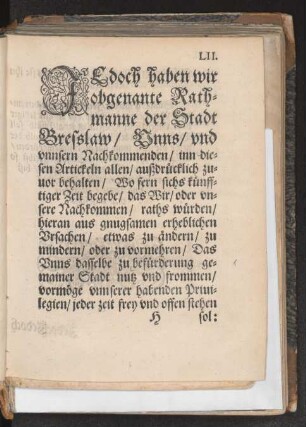 LII.
JEdoch haben wir
obgenante Rath-
manne der Stadt
Bresslaw/ Vnns/ vnd
vnnsern Nachkommenden/ inn die-
sen Artickeln allen/ außdrücklich zu-
uor behalten/ Wo fern sichs künff-
tiger Zeit begebe/ das Wir/ oder vn-
sere Nachkommen/ raths würden/
hieran aus gnugsamen erheblichen
Vrsachen/ etwas zu ändern/ zu
mindern/ oder zu vormehren/ Das
Vnns dasselbe zu befürderung ge-
mainer Stadt nutz vnd frommen/
vormöge vnnserer habenden Priui-
legien/ jeder zeit frey vnd offen stehen
H sol: